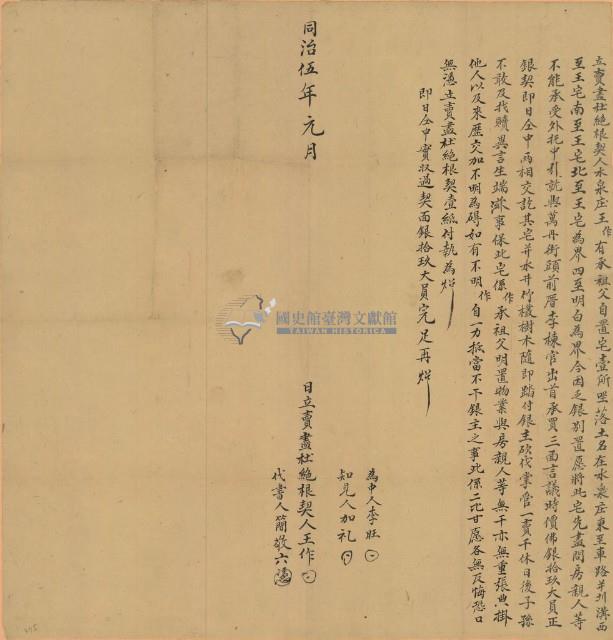 立賣盡杜絕根契人水泉庄王作有承祖父自置宅壹所坐落土名在水泉庄東至車路半圳溝西
至王宅南至王宅北至王宅為界四至明白為界今因乏銀別置愿將此宅先盡問房親人等
不能承受外托中引就與萬丹街頭前厝李棟官出首承買三面言議時價佛銀拾玖大員正
銀契即日仝中兩相交訖其宅并水井竹模樹木隨即踏付銀主砍伐掌管一賣千休日後子孫
不敢及找贖異言生端滋事保此宅係作承祖父明置物業與房親人等無干亦無重張典掛
他人以及來歷交加不明為碍如有不明作自一力抵當不干銀主之事此係二比甘愿各無反悔恐口
無憑立賣盡杜絕根契壹紙付執為炤
即日仝中實收過契面銀拾玖大員完足再炤
為中人李旺
知見人加礼
同治伍年元月 日立賣盡杜絕根契人王作
代書人簡敬六
國史館臺灣文獻館
TAIWAN HISTORICA